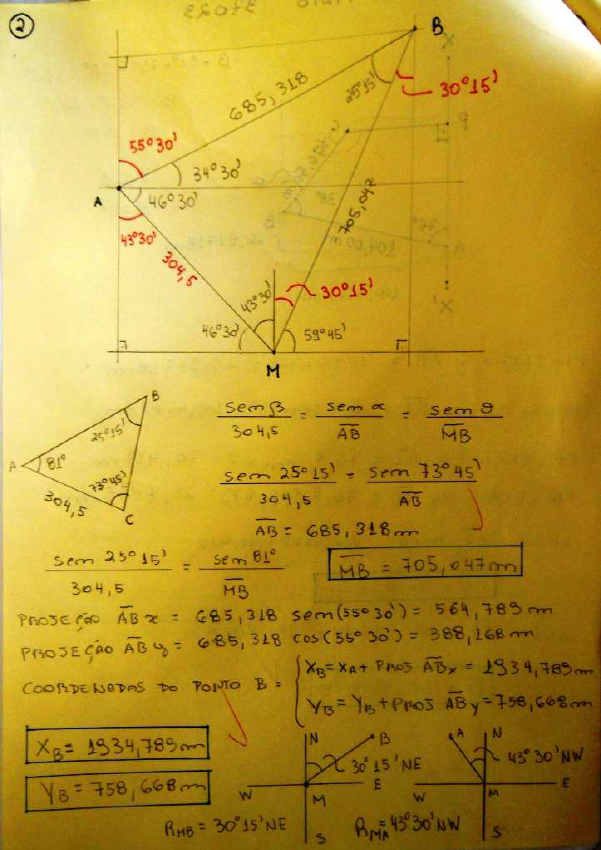 2
B
685,318
25°15'
30°15'
55°30'
34°30'
A
46°30'
43°30'
304,5
705,047
43°30'
30°15'
46°30'
59°45'
M
B
25°15'
A
81°
73°45'
304,5
C
sem β / 304,5 = sem α / AB = sem θ / MB
sem 25°15' / 304,5 = sem 73°45' / AB
AB = 685,318m
sem 25°15' / 304,5 = sem 81° / MB
MB = 705,047m
PROJEÇÃO ABx = 685,318 sem(55°30') = 564,789m
PROJEÇÃO ABy = 685,318 cos(55°30') = 388,168m
COORDENADAS DO PONTO B =
XB = XA + PROJ ABx = 1934,789m
YB = YB + PROJ ABy = 758,668m
XB = 1934,789m
YB = 758,668m
N
B
30°15'NE
W
E
M
S
RMB = 30°15'NE
A
N
43°30'NW
W
E
M
S
RMA = 43°30'NW